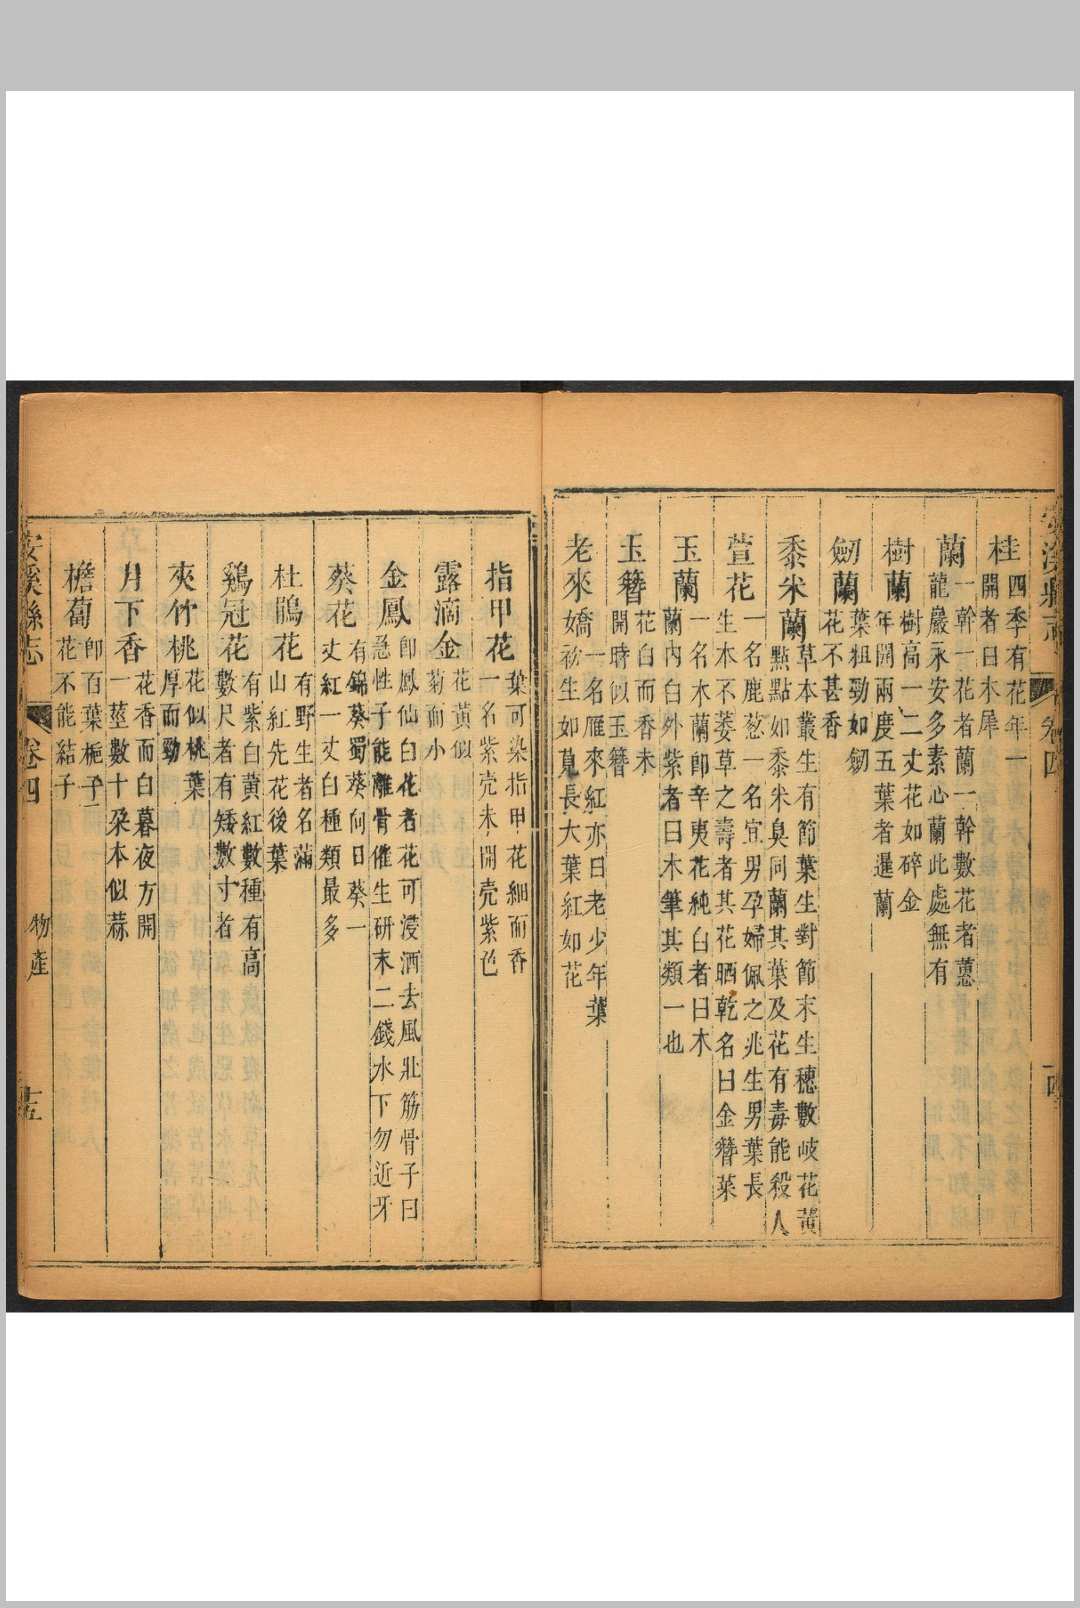 桂四季有花年一
開者曰木犀
蘭一幹一花者蘭一幹數花者蕙
龍巖永安多素心蘭此處無有
樹蘭樹高一二丈花如碎金
年開兩度五葉者暹蘭
劒蘭葉粗勁如劒
花不甚香
黍米蘭草本叢生有節葉生對節末生穗數岐花黃
點點如黍米臭同蘭其葉及花有毒能殺人
萱花一名鹿葱一名宜男孕婦佩之兆生男葉長
生木不萎草之壽者其花晒乾名曰金簪菜
玉蘭一名木蘭卽辛夷花純白者曰木
蘭內白外紫者曰木筆其類一也
玉簪花白而香未
開時似玉簪
老來嬌一名雁來紅亦曰老少年葉
初生如莧長大葉紅如花
卷四
指甲花葉可染指甲花細而香
一名紫壳未開壳紫色
露滴金花黃似
菊而小
金鳳卽鳳仙白花者花可浸酒去風壯筋骨子曰
急性子能離骨催生研末二錢水下勿近牙
葵花有錦葵蜀葵向日葵一
丈紅一丈白種類最多
杜鵑花有野生者名滿
山紅先花後葉
鷄冠花有紫白黃紅數種有高
數尺者有矮數寸者
夾竹桃花似桃葉
厚而勁
月下香花香而白暮夜方開
一莖數十朶本似蒜
檐蔔卽百葉梔子
花不能結子
安溪縣志
卷四
物產
十五